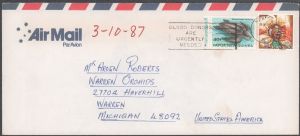 Air Mail
Par Avion
3-10-87
BLOOD DONORS
ARE
URGENTLY
NEEDED
Mr Arlen Roberts
Warren Orchids
27704 Haverhill
Warren
Michigan 48092
United States America